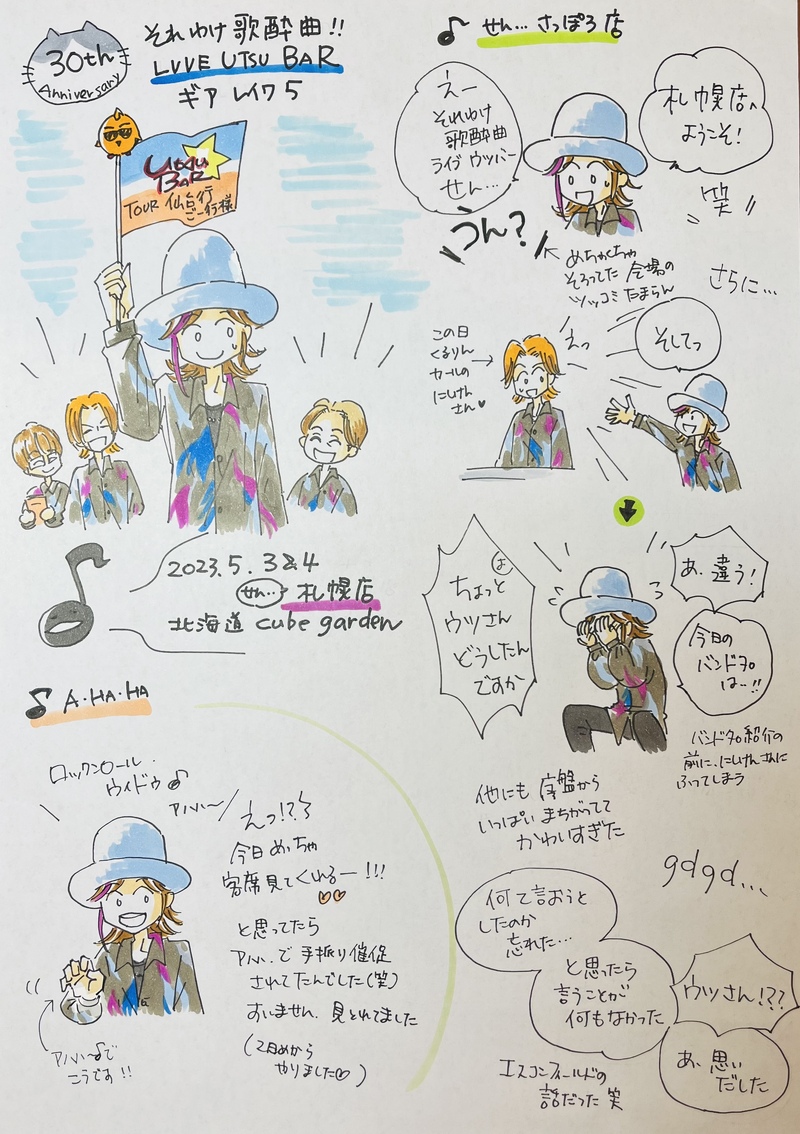 30th
Anniversary
それゆけ歌酔曲!!
LVVE UTSU BAR
ギア レイワ5
UTSU
BAR
TOUR 仙台行
ご一行様
2023.5.3&4
せん… 札幌店
北海道 cube garden
♪ せん… さっぽろ店
えー
それゆけ
歌酔曲
ライブ ウツバー
せん…
札幌店へ
ようこそ!
笑
うん?
めちゃくちゃ
そろってた 会場の
ツッコミ たまらん
さらに…
この日
くるりん
カールの
にしけん
さん♥
えっ
そしてっ
ちょっと
ウツさん
どうしたん
ですか
あ、違う!
今日の
バンドメンバー
は…!!
バンドメンバー紹介の
前に、にしけんさんに
ふってしまう
他にも 序盤から
いっぱい まちがってて
かわいすぎた
gdgd…
何て言おうと
したのか
忘れた…
と思ったら
言うことが
何もなかった
ウツさん!??
あ、思い
だした
エスコンフィールドの
話だった 笑
♪ A・HA・HA
ロックンロール・
ウィドウ♪
アハハ〜
えっ!?
今日 めっちゃ
客席見てくれるー!!!
と思ってたら
アハハ、で 手振り催促
されてたんでした(笑)
すいません、見とれてました
(2日めから
やりました♡)
アハハ〜♪で
こうです!!